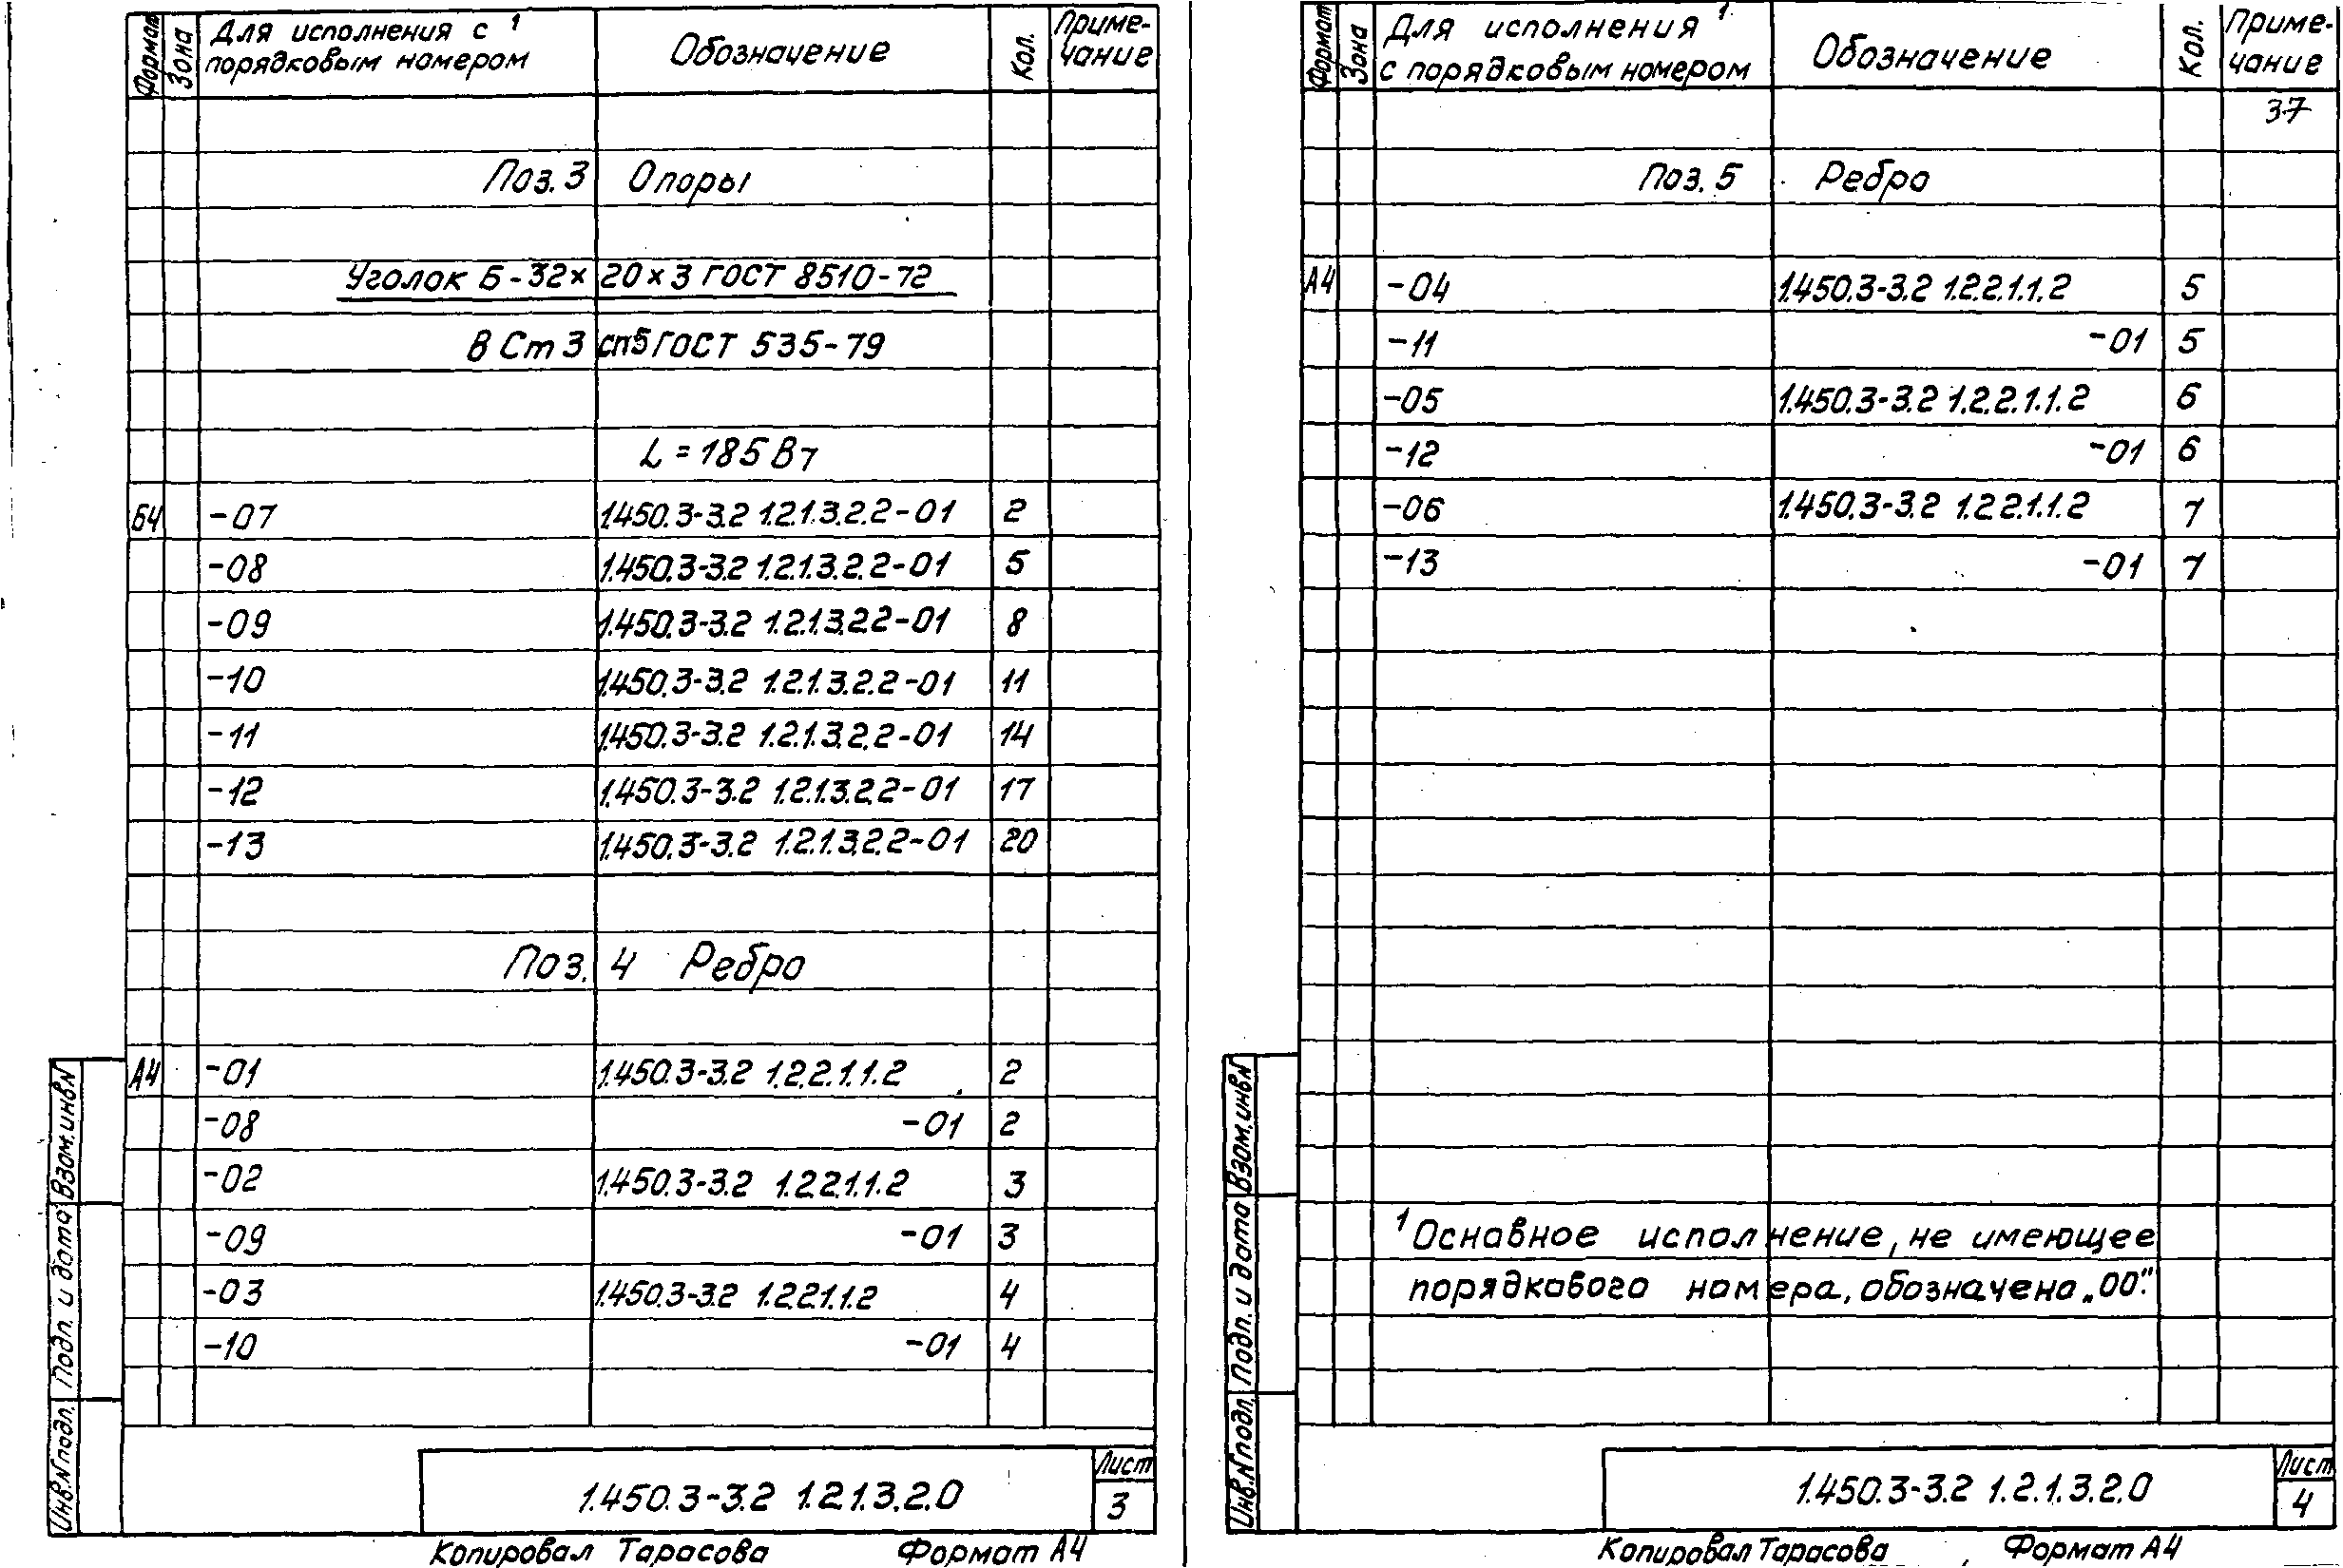 Формат
Зона
Для исполнения с ¹
порядковым номером
Обозначение
Кол.
Приме-
чание
Поз. 3 Опоры
Уголок Б-32×20×3 ГОСТ 8510-72
ВСт3сп5 ГОСТ 535-79
L = 185 Вт
Б4 -07 1.450.3-3.2 1.2.1.3.2.2-01 2
-08 1.450.3-3.2 1.2.1.3.2.2-01 5
-09 1.450.3-3.2 1.2.1.3.2.2-01 8
-10 1.450.3-3.2 1.2.1.3.2.2-01 11
-11 1.450.3-3.2 1.2.1.3.2.2-01 14
-12 1.450.3-3.2 1.2.1.3.2.2-01 17
-13 1.450.3-3.2 1.2.1.3.2.2-01 20
Поз. 4 Ребро
А4 -01 1.450.3-3.2 1.2.2.1.1.2 2
-08 -01 2
-02 1.450.3-3.2 1.2.2.1.1.2 3
-09 -01 3
-03 1.450.3-3.2 1.2.2.1.1.2 4
-10 -01 4
Взам.инв.N
Подп. и дата
Инв.N подл.
1.450.3-3.2 1.2.1.3.2.0
Лист
3
Копировал Тарасова Формат А4
Формат
Зона
Для исполнения ¹
с порядковым номером
Обозначение
Кол.
Приме-
чание
37
Поз. 5 Ребро
А4 -04 1.450.3-3.2 1.2.2.1.1.2 5
-11 -01 5
-05 1.450.3-3.2 1.2.2.1.1.2 6
-12 -01 6
-06 1.450.3-3.2 1.2.2.1.1.2 7
-13 -01 7
¹ Основное исполнение, не имеющее
порядкового номера, обозначено „00".
Взам.инв.N
Подп. и дата
Инв.N подл.
1.450.3-3.2 1.2.1.3.2.0
Лист
4
Копировал Тарасова Формат А4